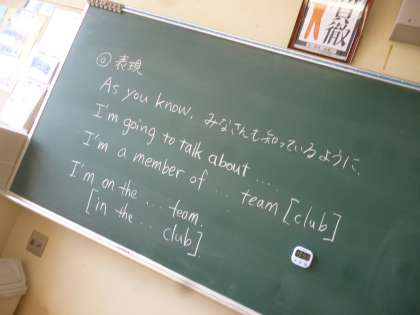 貫徹
◎表現
As you know, みなさんも知っているように、
I'm going to talk about .....
I'm a member of ... team [club]
I'm on the ... team.
[in the ... club].